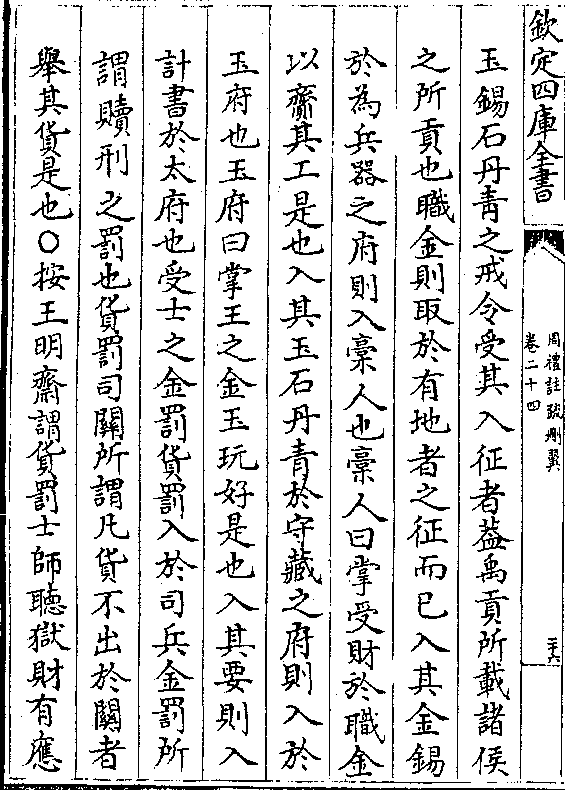 欽定四庫全書
周禮註疏刪翼
卷二十四
二十六
玉錫石丹青之戒令受其入征者葢禹貢所載諸侯
之所貢也職金則取於有地者之征而已入其金錫
於為兵器之府則入稾人也稾人曰掌受財於職金
以齎其工是也入其玉石丹青於守藏之府則入於
玉府也玉府曰掌王之金玉玩好是也入其要則入
計書於太府也受士之金罰貨罰入於司兵金罰所
謂贖刑之罰也貨罰司關所謂凡貨不出於關者
舉其貨是也○按王明齋謂貨罰士師聽獄財有應